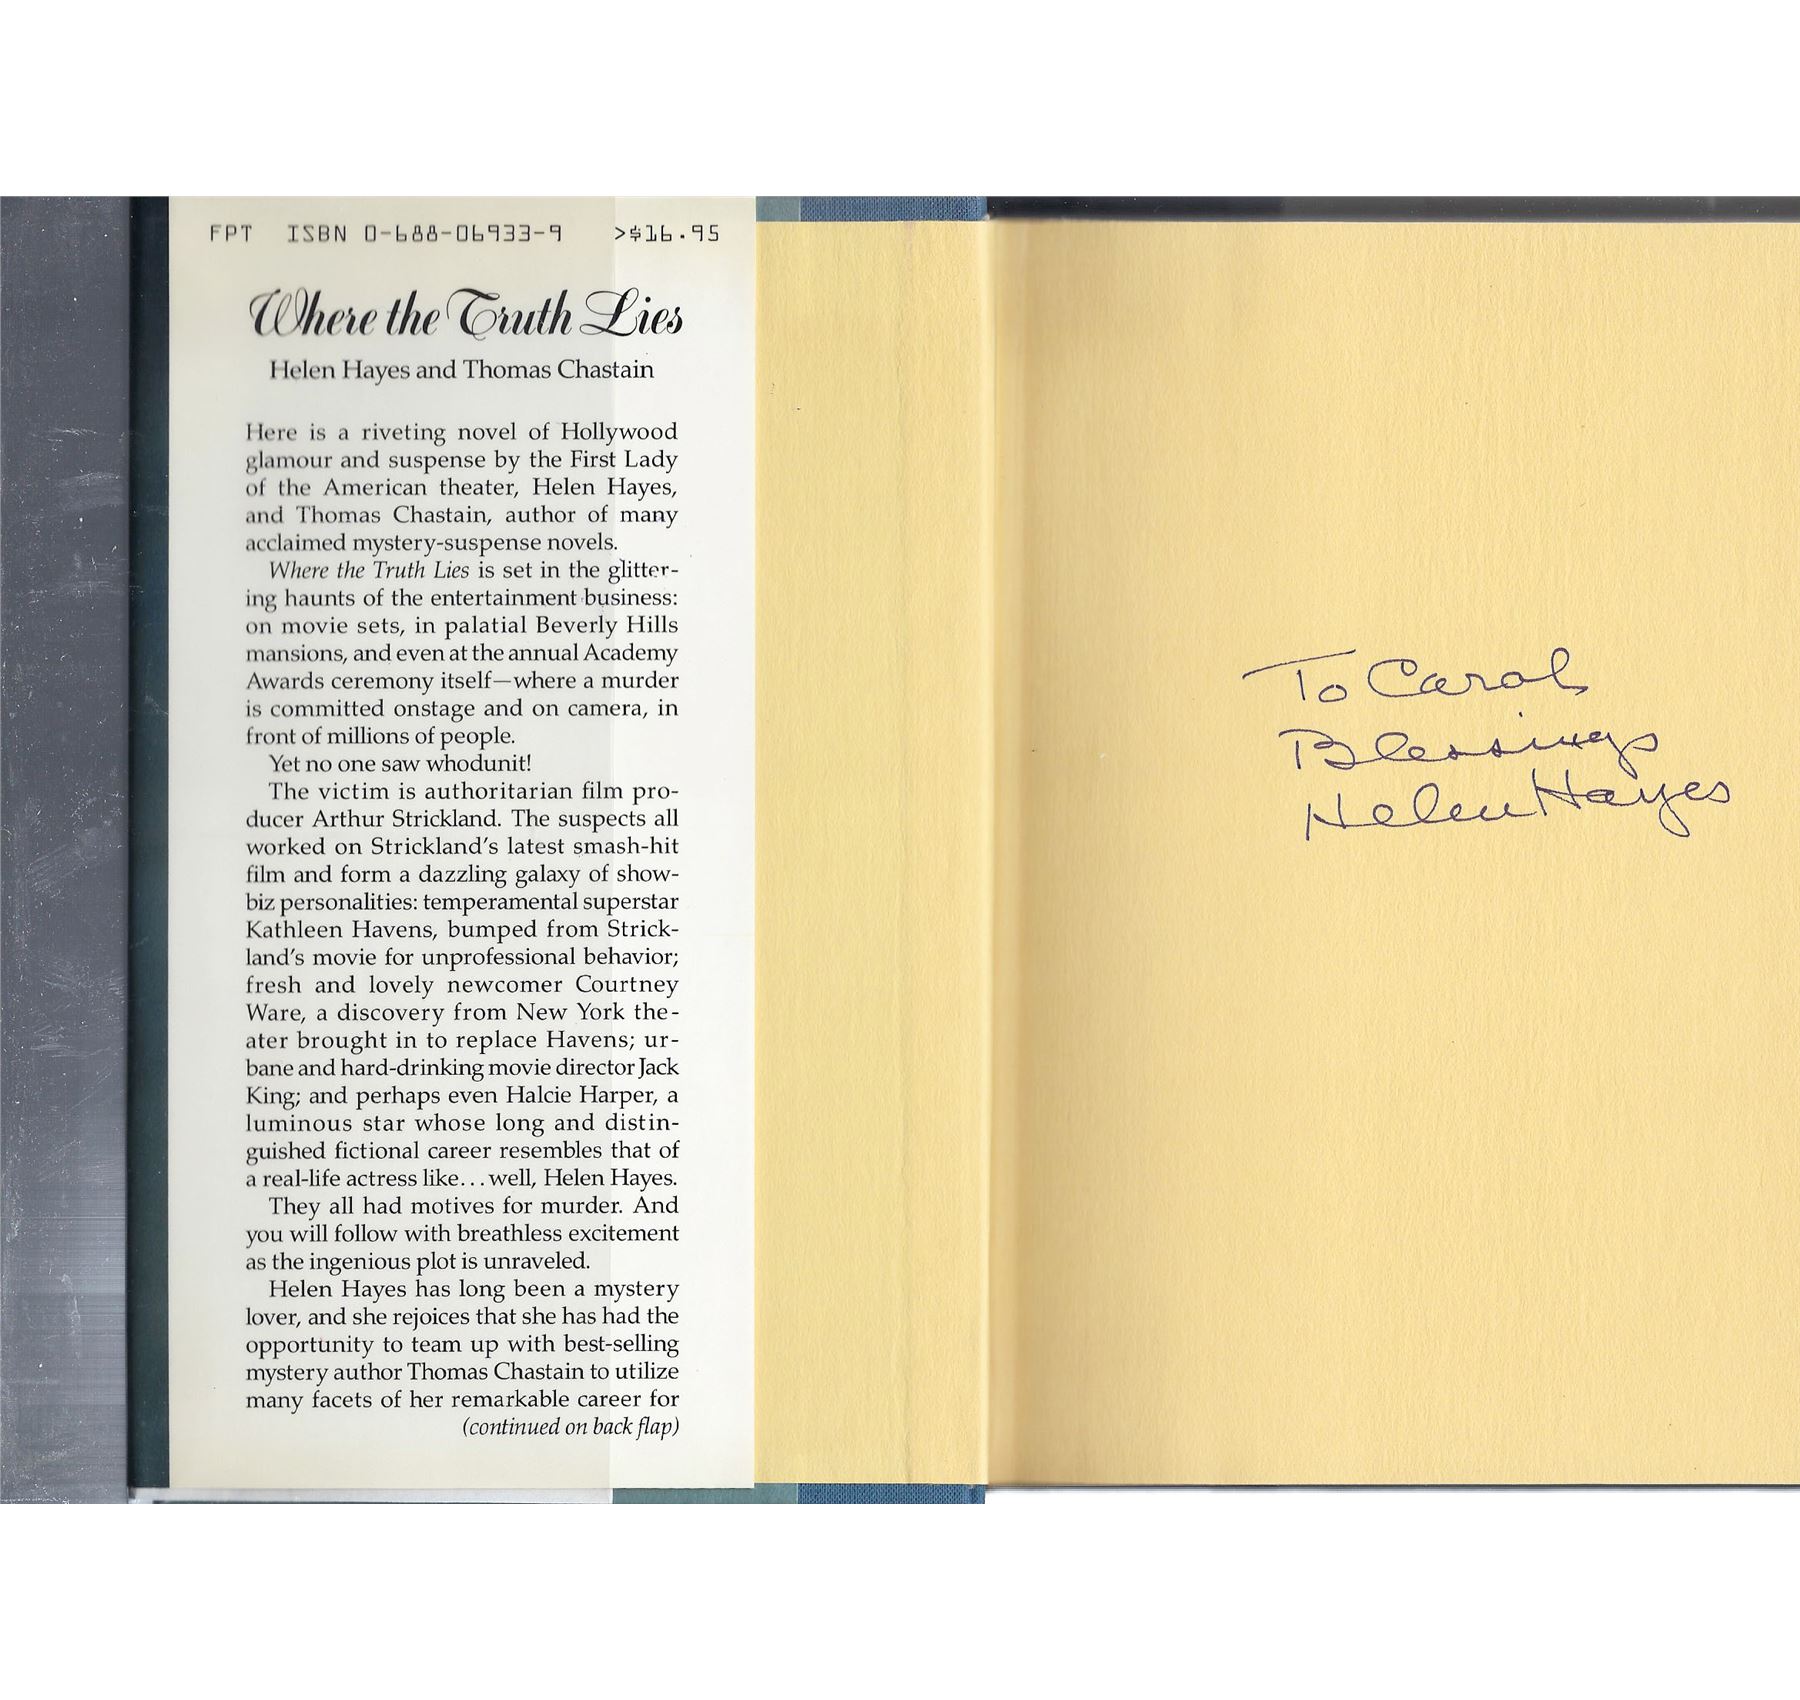 FPT ISBN 0-688-06933-9 >$16.95
Where the Truth Lies
Helen Hayes and Thomas Chastain
Here is a riveting novel of Hollywood
glamour and suspense by the First Lady
of the American theater, Helen Hayes,
and Thomas Chastain, author of many
acclaimed mystery-suspense novels.
Where the Truth Lies is set in the glitter-
ing haunts of the entertainment business:
on movie sets, in palatial Beverly Hills
mansions, and even at the annual Academy
Awards ceremony itself—where a murder
is committed onstage and on camera, in
front of millions of people.
Yet no one saw whodunit!
The victim is authoritarian film pro-
ducer Arthur Strickland. The suspects all
worked on Strickland's latest smash-hit
film and form a dazzling galaxy of show-
biz personalities: temperamental superstar
Kathleen Havens, bumped from Strick-
land's movie for unprofessional behavior;
fresh and lovely newcomer Courtney
Ware, a discovery from New York the-
ater brought in to replace Havens; ur-
bane and hard-drinking movie director Jack
King; and perhaps even Halcie Harper, a
luminous star whose long and distin-
guished fictional career resembles that of
a real-life actress like...well, Helen Hayes.
They all had motives for murder. And
you will follow with breathless excitement
as the ingenious plot is unraveled.
Helen Hayes has long been a mystery
lover, and she rejoices that she has had the
opportunity to team up with best-selling
mystery author Thomas Chastain to utilize
many facets of her remarkable career for
(continued on back flap)
To Carol
Blessings
Helen Hayes